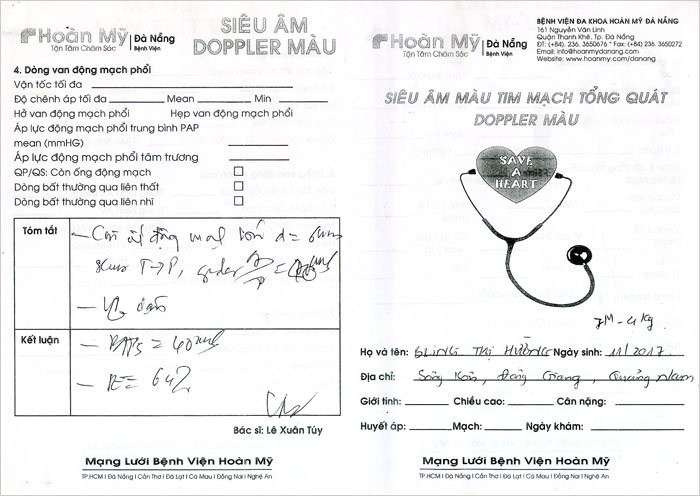 Hoàn Mỹ
Đà Nẵng
Bệnh Viện
Tận Tâm Chăm Sóc
SIÊU ÂM
DOPPLER MÀU
4. Dòng van động mạch phổi
Vận tốc tối đa
Độ chênh áp tối đa Mean Min
Hở van động mạch phổi Hẹp van động mạch phổi
Áp lực động mạch phổi trung bình PAP
mean (mmHG)
Áp lực động mạch phổi tâm trương
QP/QS: Còn ống động mạch
Dòng bất thường qua liên thất
Dòng bất thường qua liên nhĩ
Tóm tắt
- Còn ống động mạch
Kết luận
- PAPs = 40
- = 64%
Bác sĩ: Lê Xuân Túy
Mạng Lưới Bệnh Viện Hoàn Mỹ
TP.HCM I Đà Nẵng I Cần Thơ I Đà Lạt I Cà Mau I Đồng Nai I Nghệ An
Hoàn Mỹ
Đà Nẵng
Bệnh Viện
Tận Tâm Chăm Sóc
BỆNH VIỆN ĐA KHOA HOÀN MỸ ĐÀ NẴNG
161 Nguyễn Văn Linh
Quận Thanh Khê, Tp. Đà Nẵng
ĐT: (+84). 236. 3650676 * Fax: (+84) 236. 3650272
Email: contactus.danang@hoanmy.com
Website: www.hoanmy.com/danang
SIÊU ÂM MÀU TIM MẠCH TỔNG QUÁT
DOPPLER MÀU
SAVE
A
HEART
7M - 4kg
Họ và tên: BLING THỊ HƯỜNG Ngày sinh: 11/2017
Địa chỉ: Sông Kôn, Đông Giang, Quảng Nam
Giới tính: Chiều cao: Cân nặng:
Huyết áp: Mạch: Ngày khám:
Mạng Lưới Bệnh Viện Hoàn Mỹ
TP.HCM I Đà Nẵng I Cần Thơ I Đà Lạt I Cà Mau I Đồng Nai I Nghệ An